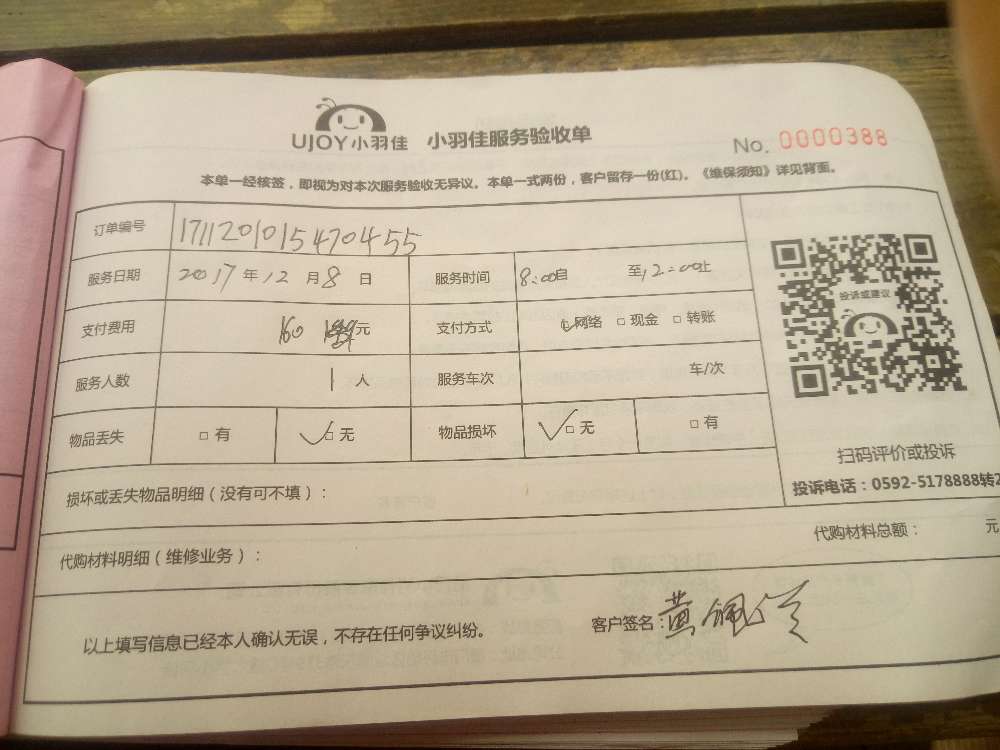 UJOY小羽佳 小羽佳服务验收单
No. 0000388
本单一经核签，即视为对本次服务验收无异议。本单一式两份，客户留存一份(红)。《维保须知》详见背面。
订单编号 1711201015470455
服务日期 2017年12月8日 服务时间 8:00自 至12:00止
支付费用 160 元 支付方式 ☑网络 □现金 □转账
服务人数 1人 服务车次 车/次
物品丢失 □有 ☑无 物品损坏 ☑无 □有
投诉或建议
扫码评价或投诉
投诉电话：0592-5178888转2
损坏或丢失物品明细（没有可不填）：
代购材料明细（维修业务）： 代购材料总额： 元
以上填写信息已经本人确认无误，不存在任何争议纠纷。 客户签名：黄